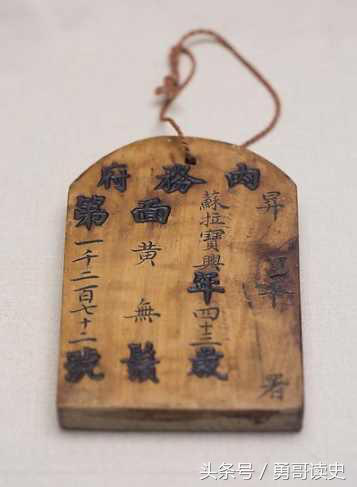 內務府
昇平署
蘇拉寶興年四十三歲
面黄無鬚
第一千二百七十二號
头条号 / 勇哥读史